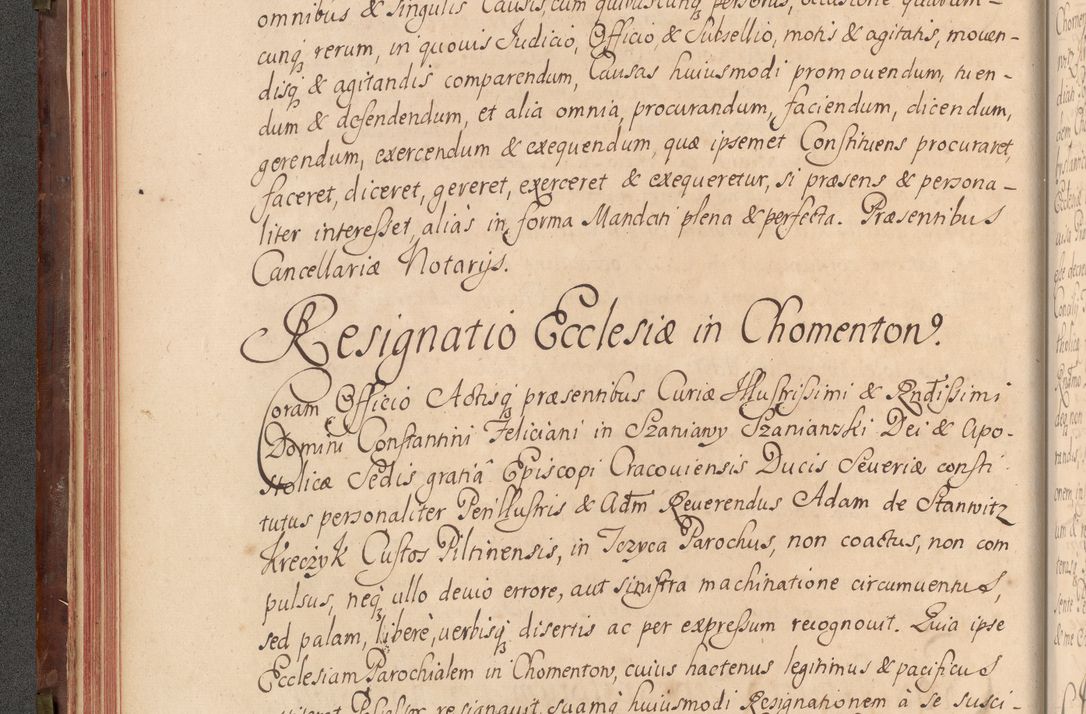 omnibus & singulis Causis, cum quibuscunq personis, occasione quarum-
cunq rerum, in quouis Judicio, Officio, & Subsellio, motis & agitatis, mouen-
disq & agitandis comparendum, Causas huiusmodi promouendum, tuen-
dum & defendendum, et alia omnia, procurandum, faciendum, dicendum,
gerendum, exercendum & exequendum, quæ ipsemet Constituens procuraret,
faceret, diceret, gereret, exerceret & exequeretur, si præsens & persona-
liter interesset, aliàs in forma Mandati plena & perfecta. Præsentibus
Cancellariæ Notarijs.
Resignatio Ecclesiæ in Chomentow.
Coram Officio Actisq præsentibus Curiæ Illustrissimi & Rndissimi
Domini Constantini Feliciani in Szaniawy Szaniawski Dei & Apo-
stolicæ Sedis gratiâ Episcopi Cracouiensis Ducis Seueriæ consti-
tutus personaliter Perillustris & Adm Reverendus Adam de Stanwitz
Kreczyk Custos Piltinensis, in Tczyca Parochus, non coactus, non com
pulsus, neq ullo deuio errore, aut sinistra machinatione circumuentus,
sed palam, liberè, uerbisq disertis ac per expressum recognouit. Quia ipse
Ecclesiam Parochialem in Chomentow, cuius hactenus legitimus & pacificus
resignauit, suamq huiusmodi Resignationem à se susci-